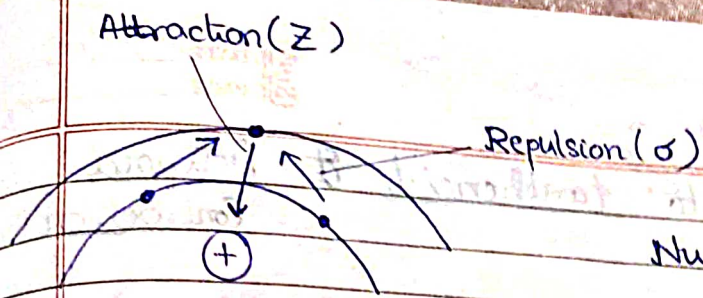 Attraction(Z)
Repulsion(σ)
Nu
+